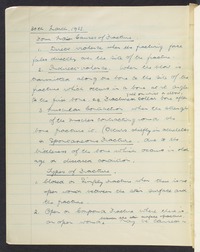 Four Main Causes of Fracture
1. Direct violence when the fracturing force
falls directly on the site of the fracture.
2. Indirect violence when the force is
transmitted along the bone to the site of the
fracture which occurs in a bone at a
to the first bone eg fractured collar bone after
3. Muscular contraction when the strength
of the muscles contracting and the
bone fracture it. (Occurs chiefly in
4. Spontaneous Fracture due to the
brittleness of the bone which occurs in old
age or diseased condition.
Types of Fracture
1. Closed or Simple fracture when there is no
open wound between the skin surface and
the fracture
2. Open or Compound Fracture when there is
an open wound,